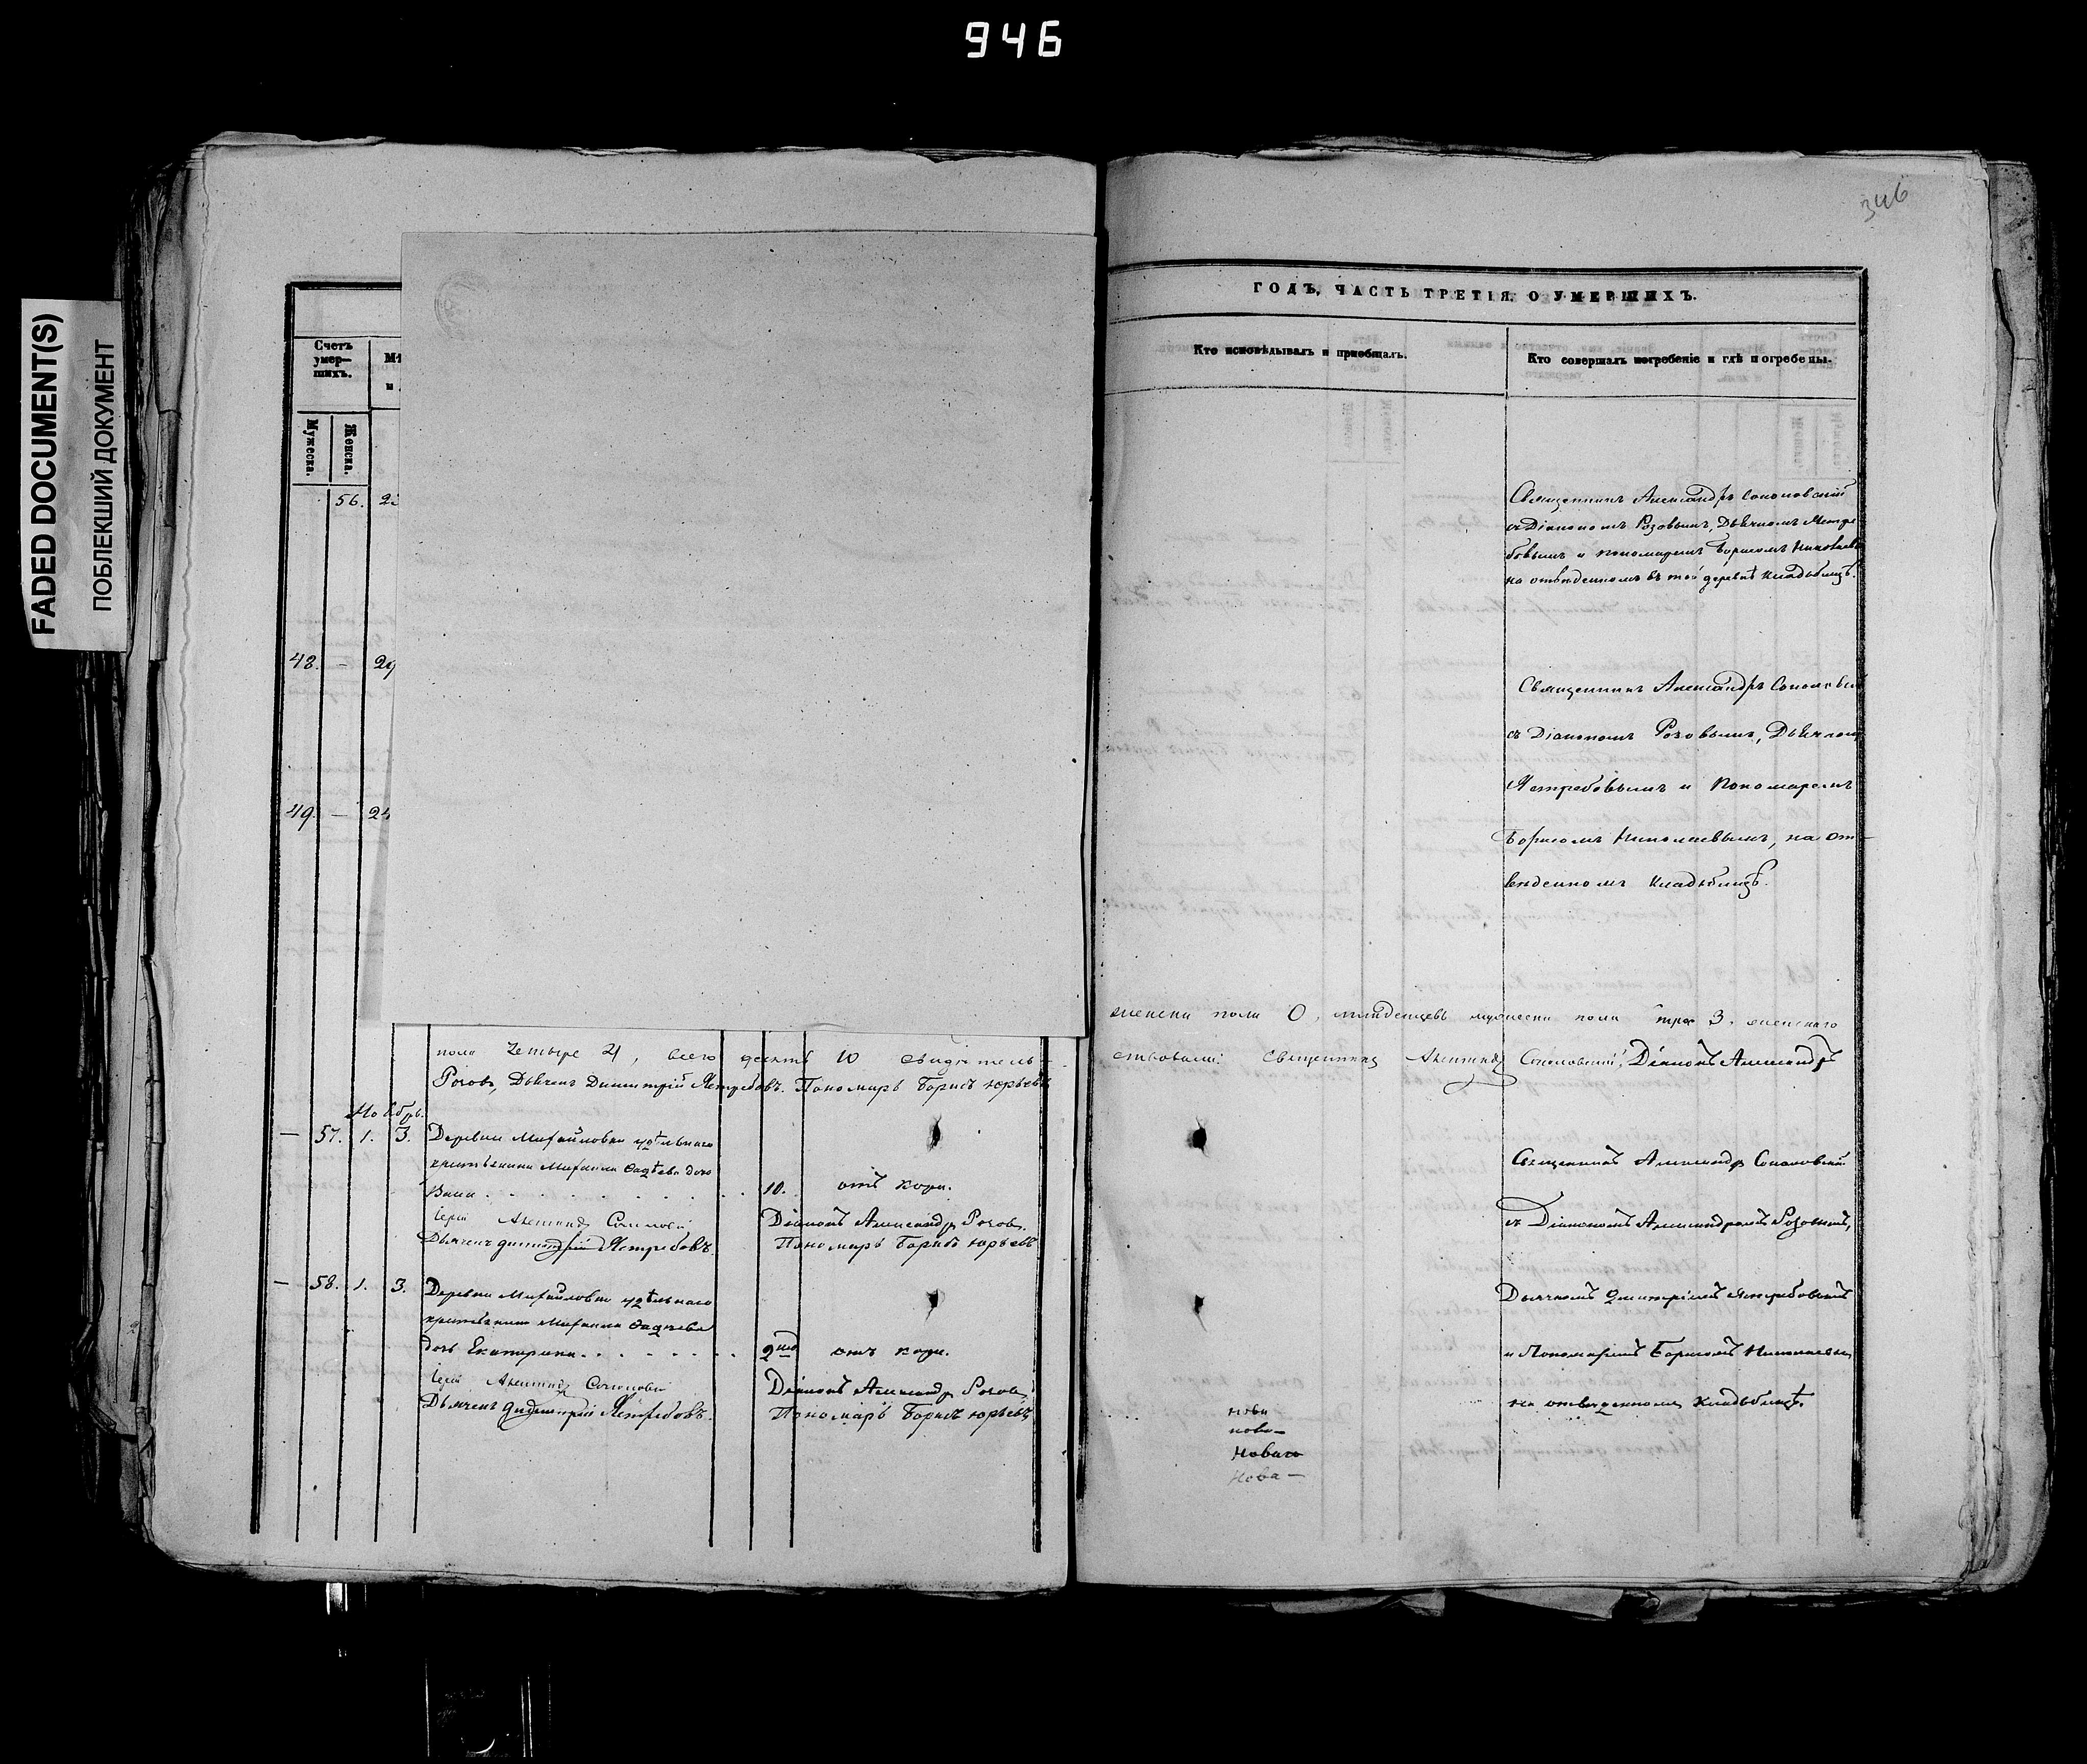 946
FADED DOCUMENT(S)
ПОБЛЕКШИЙ ДОКУМЕНТ
Счетъ
умер—
шихъ.
Мѣ
и
Мужеска.
Женска.
56. 23
48. — 29
49. — 24
пола четыре 4, всего десять 10 свидѣтель-
Розовъ, Дьячекъ Димитрій Ястребовъ. Пономарь Борисъ Юрьевъ
Ноябрь.
— 57. 1. 3. Деревни Михайловки удѣльнаго
крестьянина Михаила Фадѣева дочь
10. отъ кори.
Іерей Александръ Соколовскій Діаконъ Александръ Розовъ.
Дьячекъ Димитрій Ястребовъ. Пономарь Борисъ Юрьевъ
— 58. 1. 3. Деревни Михайловки удѣльнаго
крестьянина Михаила Фадѣева
дочь Екатерина. 2 отъ кори.
Іерей Александръ Соколовскій Діаконъ Александръ Розовъ
Дьячекъ Димитрій Ястребовъ. Пономарь Борисъ Юрьевъ
346
ГОДЪ, ЧАСТЬ ТРЕТІЯ, О УМЕРШИХЪ.
Кто исповѣдывалъ и пріобщалъ.
Кто совершалъ погребеніе и гдѣ погребены.
Священникъ Александръ Соколовскій
съ Діакономъ Розовымъ, Дьячкомъ Ястре
бовымъ и пономаремъ Борисомъ Николаев
на отведенномъ въ той деревнѣ кладбищѣ.
Священникъ Александръ Соколовскій
съ Діакономъ Розовымъ, Дьячкомъ
Ястребовымъ и Пономаремъ
Борисомъ Николаевымъ, на от—
веденномъ кладбищѣ.
женска пола 0, младенцевъ мужеска пола три 3. женскаго
ствовали: Священникъ Александръ Соколовскій, Діаконъ Александръ
Священникъ Александръ Соколовскій
съ Діакономъ Александромъ Розовымъ,
Дьячкомъ Димитріемъ Ястребовымъ
и Пономаремъ Борисомъ Николаевы
на отведенномъ кладбищѣ.
нови
ново—
Новаго
Нова—